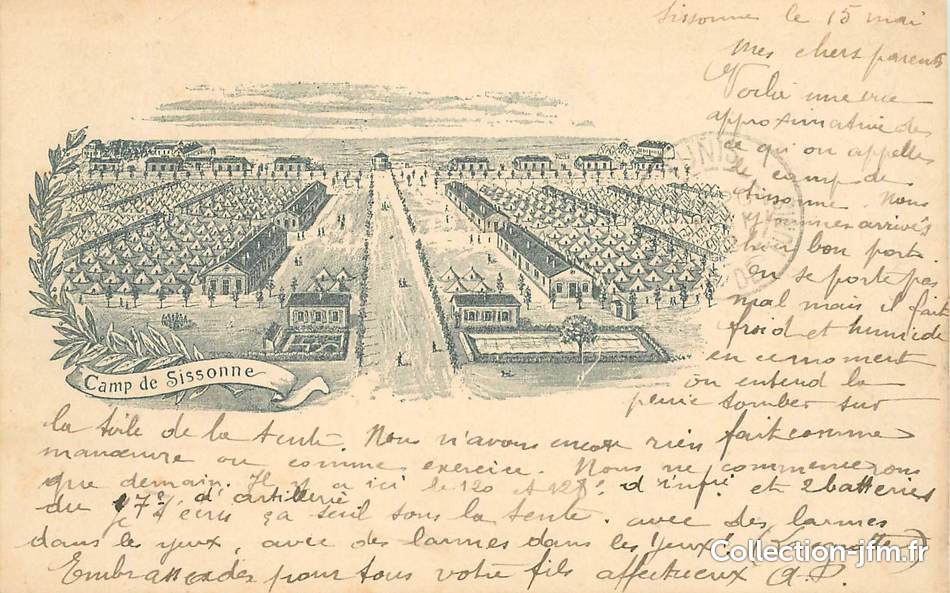 Sissonne le 15 mai
Mes chers parents
Voilà une vue
approximative des
ce qu'on appelles
le camp de
Sissonne. Nous
sommes arrivés
bon port
on se porte pas
mal mais il fait
froid et humide
en ce moment
on entend la
pluie tomber sur
la toile de la tente. Nous n'avons encore rien fait comme
manœuvre ou comme exercice. Nous ne commencerons
que demain. Il y a ici le 120 et 128e d'infie et 2 batteries
du 17e d'artillerie
je t'écris ça seul sous la tente. avec des larmes
dans les yeux, avec des larmes dans les yeux!
Embrassades pour tous votre fils affectueux A.P.
Camp de Sissonne
Collection-jfm.fr